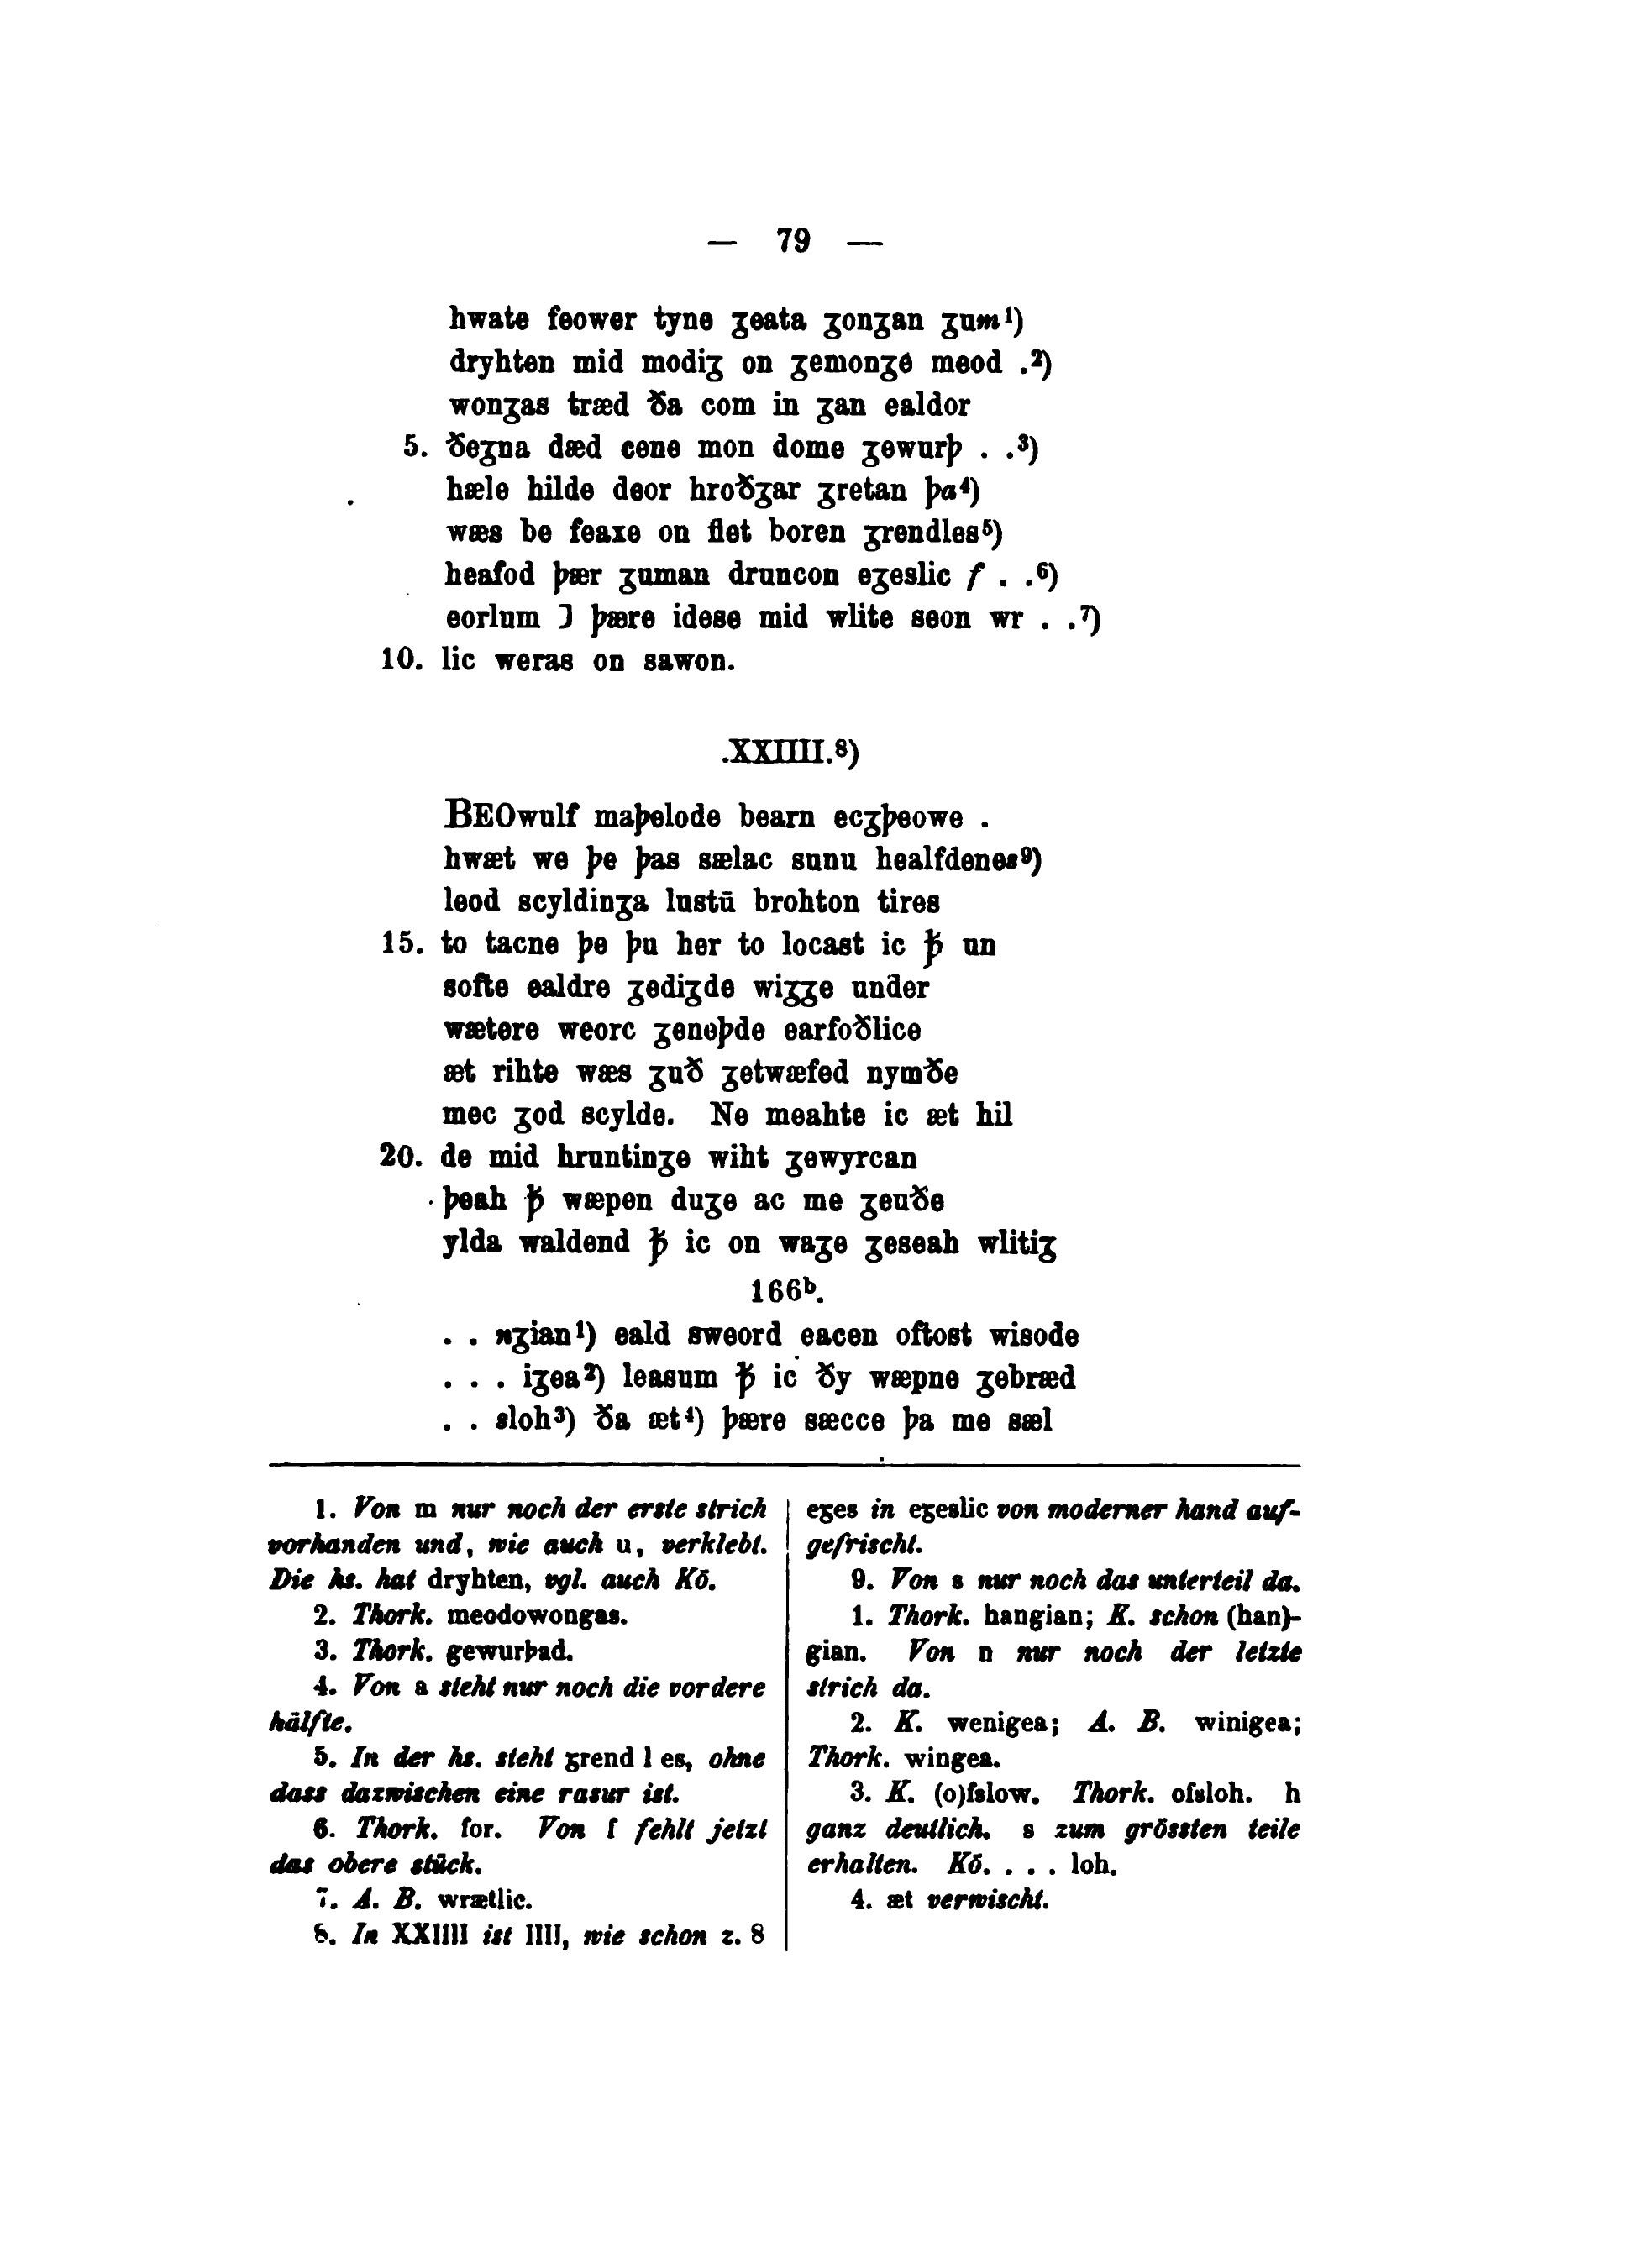 — 79 —
hwate feower tyne ȝeata ȝonȝan ȝum¹)
dryhten mid modiȝ on ȝemonȝe meod .²)
wonȝas træd ða com in ȝan ealdor
5. ðeȝna dæd cene mon dome ȝewurþ . .³)
hæle hilde deor hroðȝar ȝretan þa⁴)
wæs be feaxe on flet boren ȝrendles⁵)
heafod þær ȝuman druncon eȝeslic f . .⁶)
eorlum ⁊ þære idese mid wlite seon wr . .⁷)
10. lic weras on sawon.
.XXIIII.⁸)
BEOwulf maþelode bearn ecȝþeowe .
hwæt we þe þas sælac sunu healfdenes⁹)
leod scyldinȝa lustū brohton tires
15. to tacne þe þu her to locast ic ꝥ un
softe ealdre ȝediȝde wiȝȝe under
wætere weorc ȝeneþde earfoðlice
æt rihte wæs ȝuð ȝetwæfed nymðe
mec ȝod scylde. Ne meahte ic æt hil
20. de mid hruntinȝe wiht ȝewyrcan
þeah ꝥ wæpen duȝe ac me ȝeuðe
ylda waldend ꝥ ic on waȝe ȝeseah wlitiȝ
166ᵇ.
. . nȝian¹) eald sweord eacen oftost wisode
. . . iȝea²) leasum ꝥ ic ðy wæpne ȝebræd
. . sloh³) ða æt⁴) þære sæcce þa me sæl
1. Von m nur noch der erste strich
vorhanden und, wie auch u, verklebt.
Die hs. hat dryhten, vgl. auch Kö.
2. Thork. meodowongas.
3. Thork. gewurþad.
4. Von a steht nur noch die vordere
hälfte.
5. In der hs. steht ȝrend l es, ohne
dass dazwischen eine rasur ist.
6. Thork. for. Von f fehlt jetzt
das obere stück.
7. A. B. wrætlic.
8. In XXIIII ist IIII, wie schon z. 8
eȝes in eȝeslic von moderner hand auf-
gefrischt.
9. Von s nur noch das unterteil da.
1. Thork. hangian; K. schon (han)-
gian. Von n nur noch der letzte
strich da.
2. K. wenigea; A. B. winigea;
Thork. wingea.
3. K. (o)fslow. Thork. ofsloh. h
ganz deutlich. s zum grössten teile
erhalten. Kö. . . . loh.
4. æt verwischt.